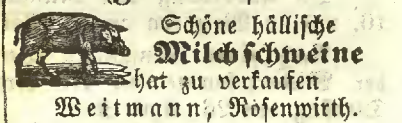 Schöne hällische
Milchschweine
hat zu verkaufen
Weitmann, Rosenwirth.